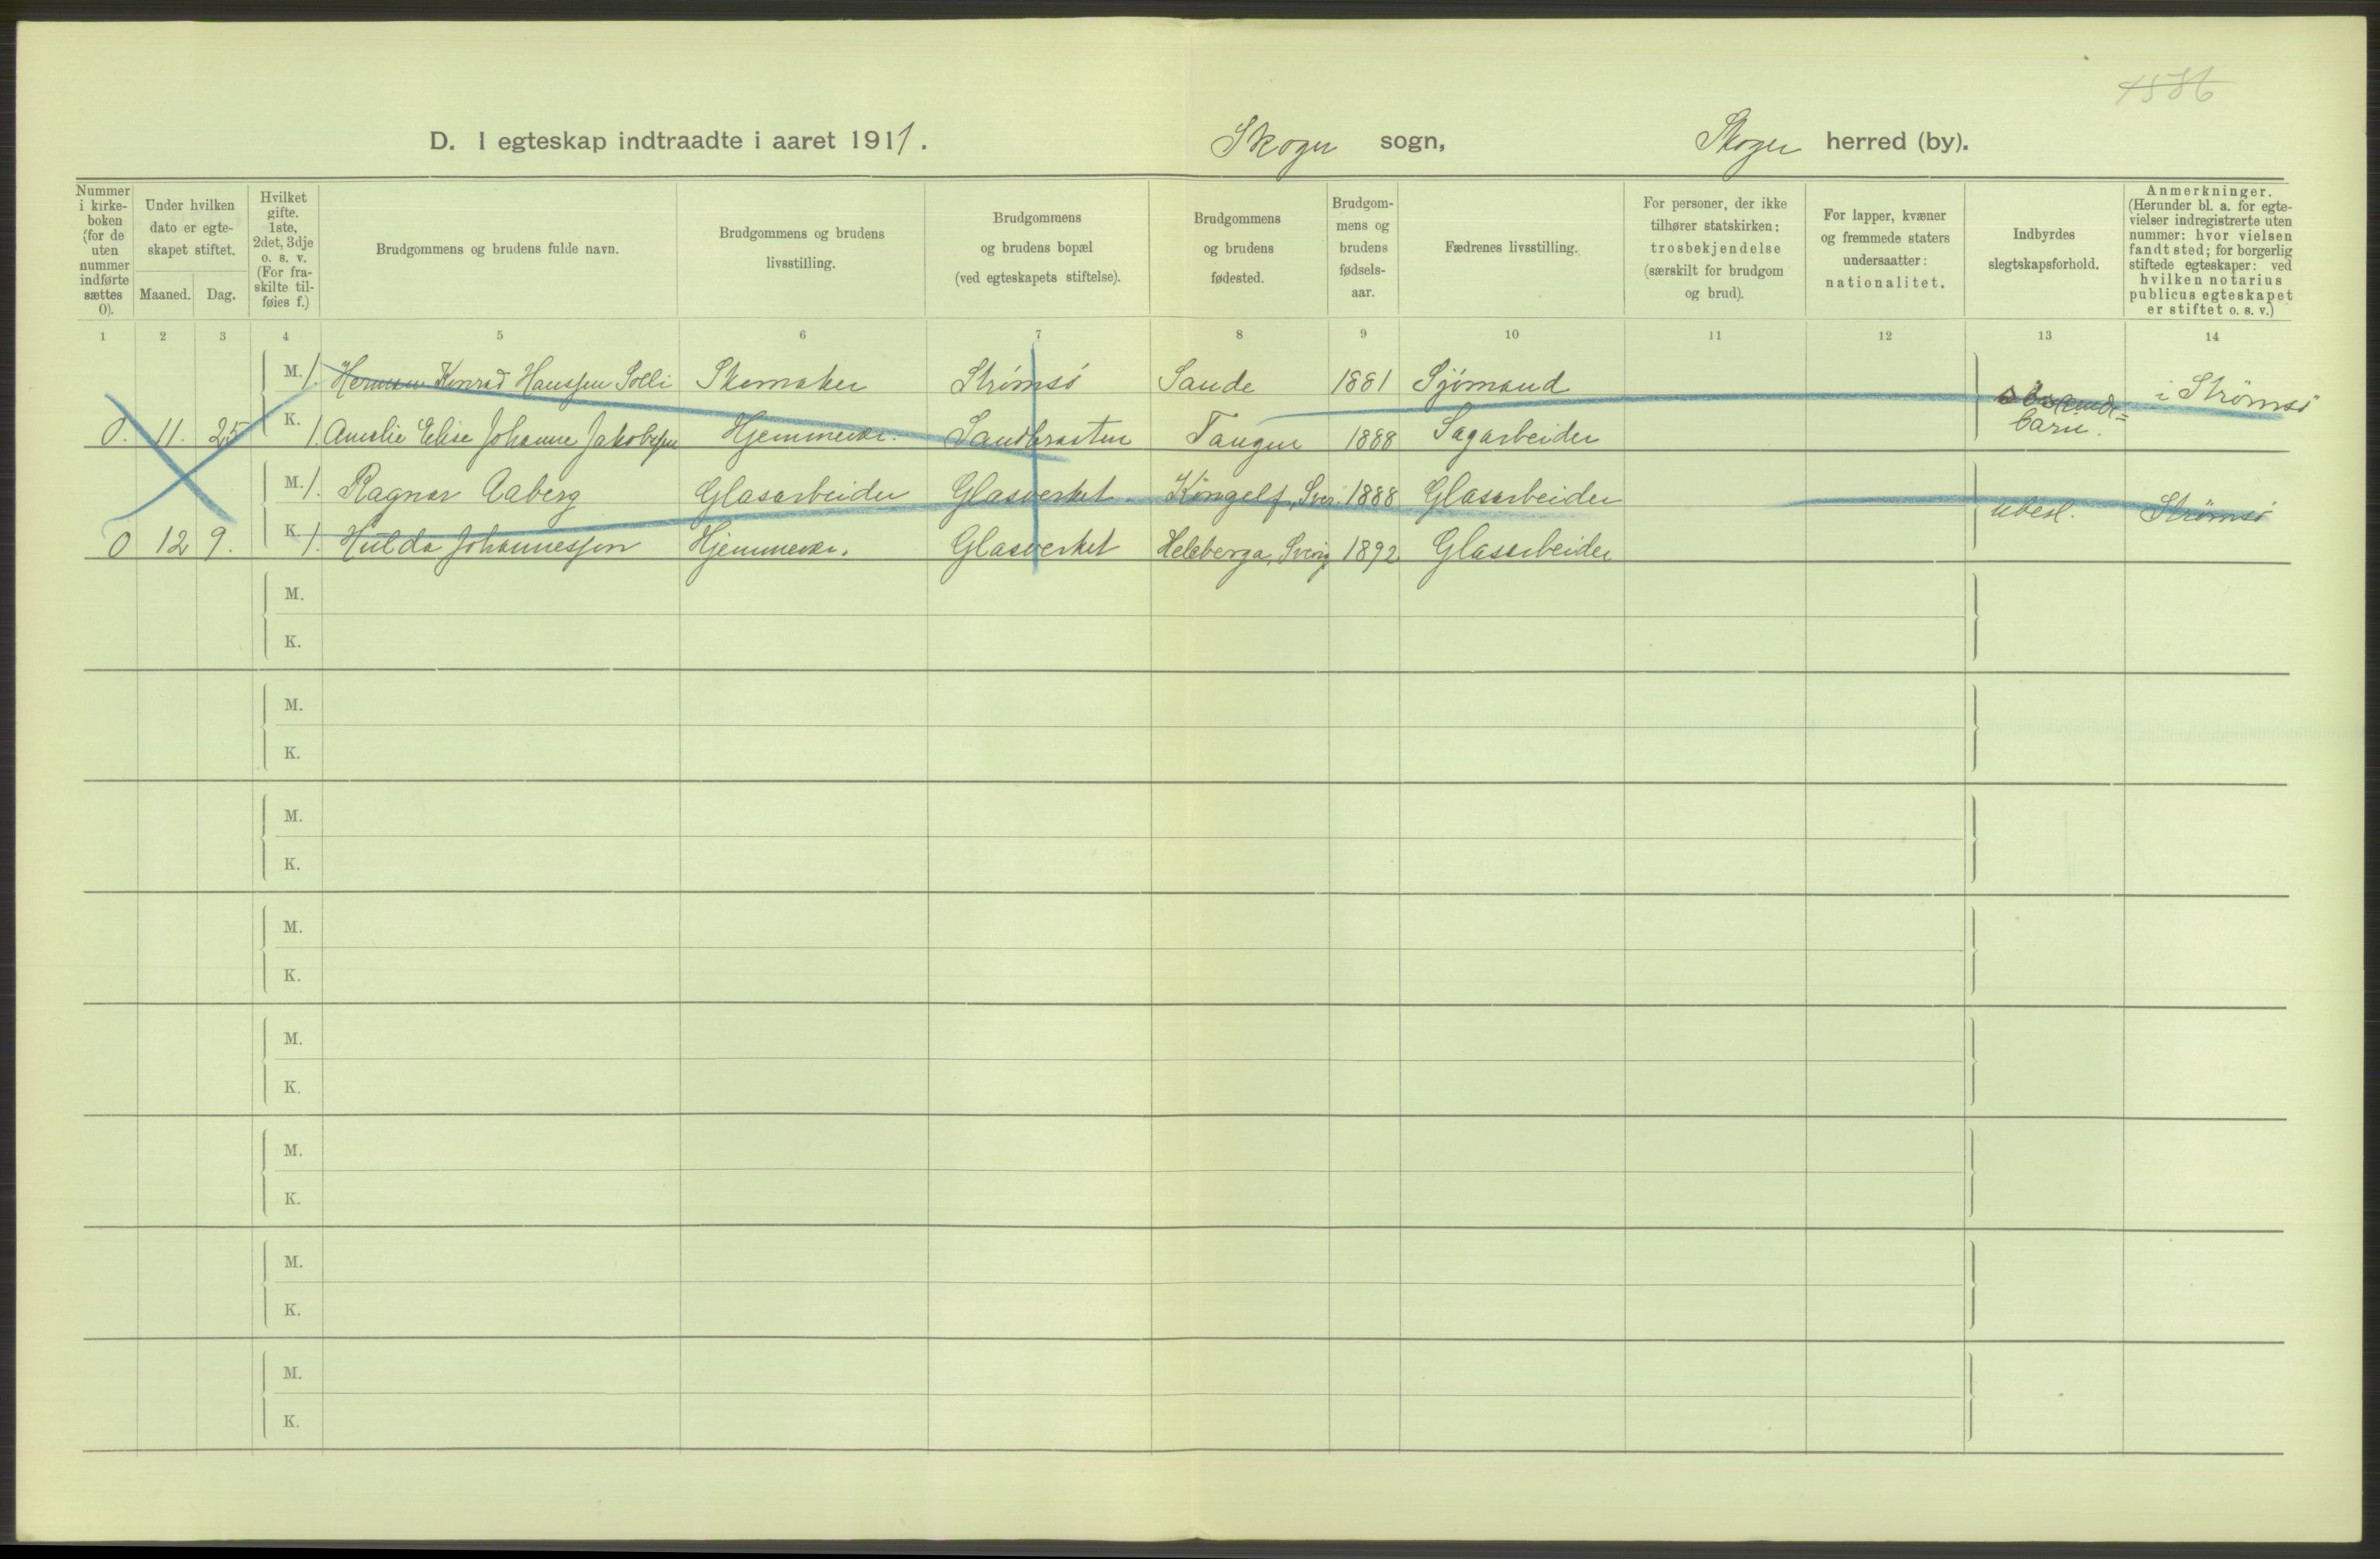 1586
D. I egteskap indtraadte i aaret 1911. Skoger sogn, Skoger herred (by).
Nummer i kirkeboken (for de uten nummer indførte sættes 0).
Under hvilken dato er egteskapet stiftet.
Maaned. Dag.
Hvilket gifte. 1ste, 2det, 3dje o. s. v. (For fraskilte tilføies f.)
Brudgommens og brudens fulde navn.
Brudgommens og brudens livsstilling.
Brudgommens og brudens bopæl (ved egteskapets stiftelse).
Brudgommens og brudens fødested.
Brudgommens og brudens fødselsaar.
Fædrenes livsstilling.
For personer, der ikke tilhører statskirken: trosbekjendelse (særskilt for brudgom og brud).
For lapper, kvæner og fremmede staters undersaatter: nationalitet.
Indbyrdes slegtskapsforhold.
Anmerkninger. (Herunder bl. a. for egtevielser indregistrerte uten nummer: hvor vielsen fandt sted; for borgerlig stiftede egteskaper: ved hvilken notarius publicus egteskapet er stiftet o. s. v.)
1 2 3 4 5 6 7 8 9 10 11 12 13 14
M. 1. Herman Konrad Hanssen Solli Skomaker Strømsö Sande 1881 Sjömand i Strømsö
0. 11. 25 K. 1. Amalie Elise Johanne Jakobsen Hjemmevær. Tangen 1888 Sagarbeider søskendebarn.
M. 1. Ragnar Aaberg Glasarbeider Glasverket Kongelf, Sver. 1888 Glasarbeider ubesl. Strømsö
0 12 9. K. 1. Hulda Johannesson Hjemmevær. Glasverket Heleberga, Sverig 1892 Glasarbeider
M.
K.
M.
K.
M.
K.
M.
K.
M.
K.
M.
K.
M.
K.
M.
K.